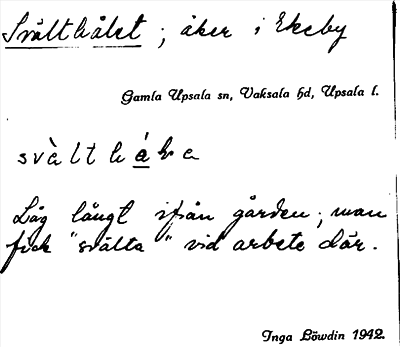 Svälthålet ; åker i Ekeby
Gamla Upsala sn, Vaksala hd, Upsala l.
Låg långt ifrån gården; man
fick "svälta" vid arbete där.
Inga Löwdin 1942.